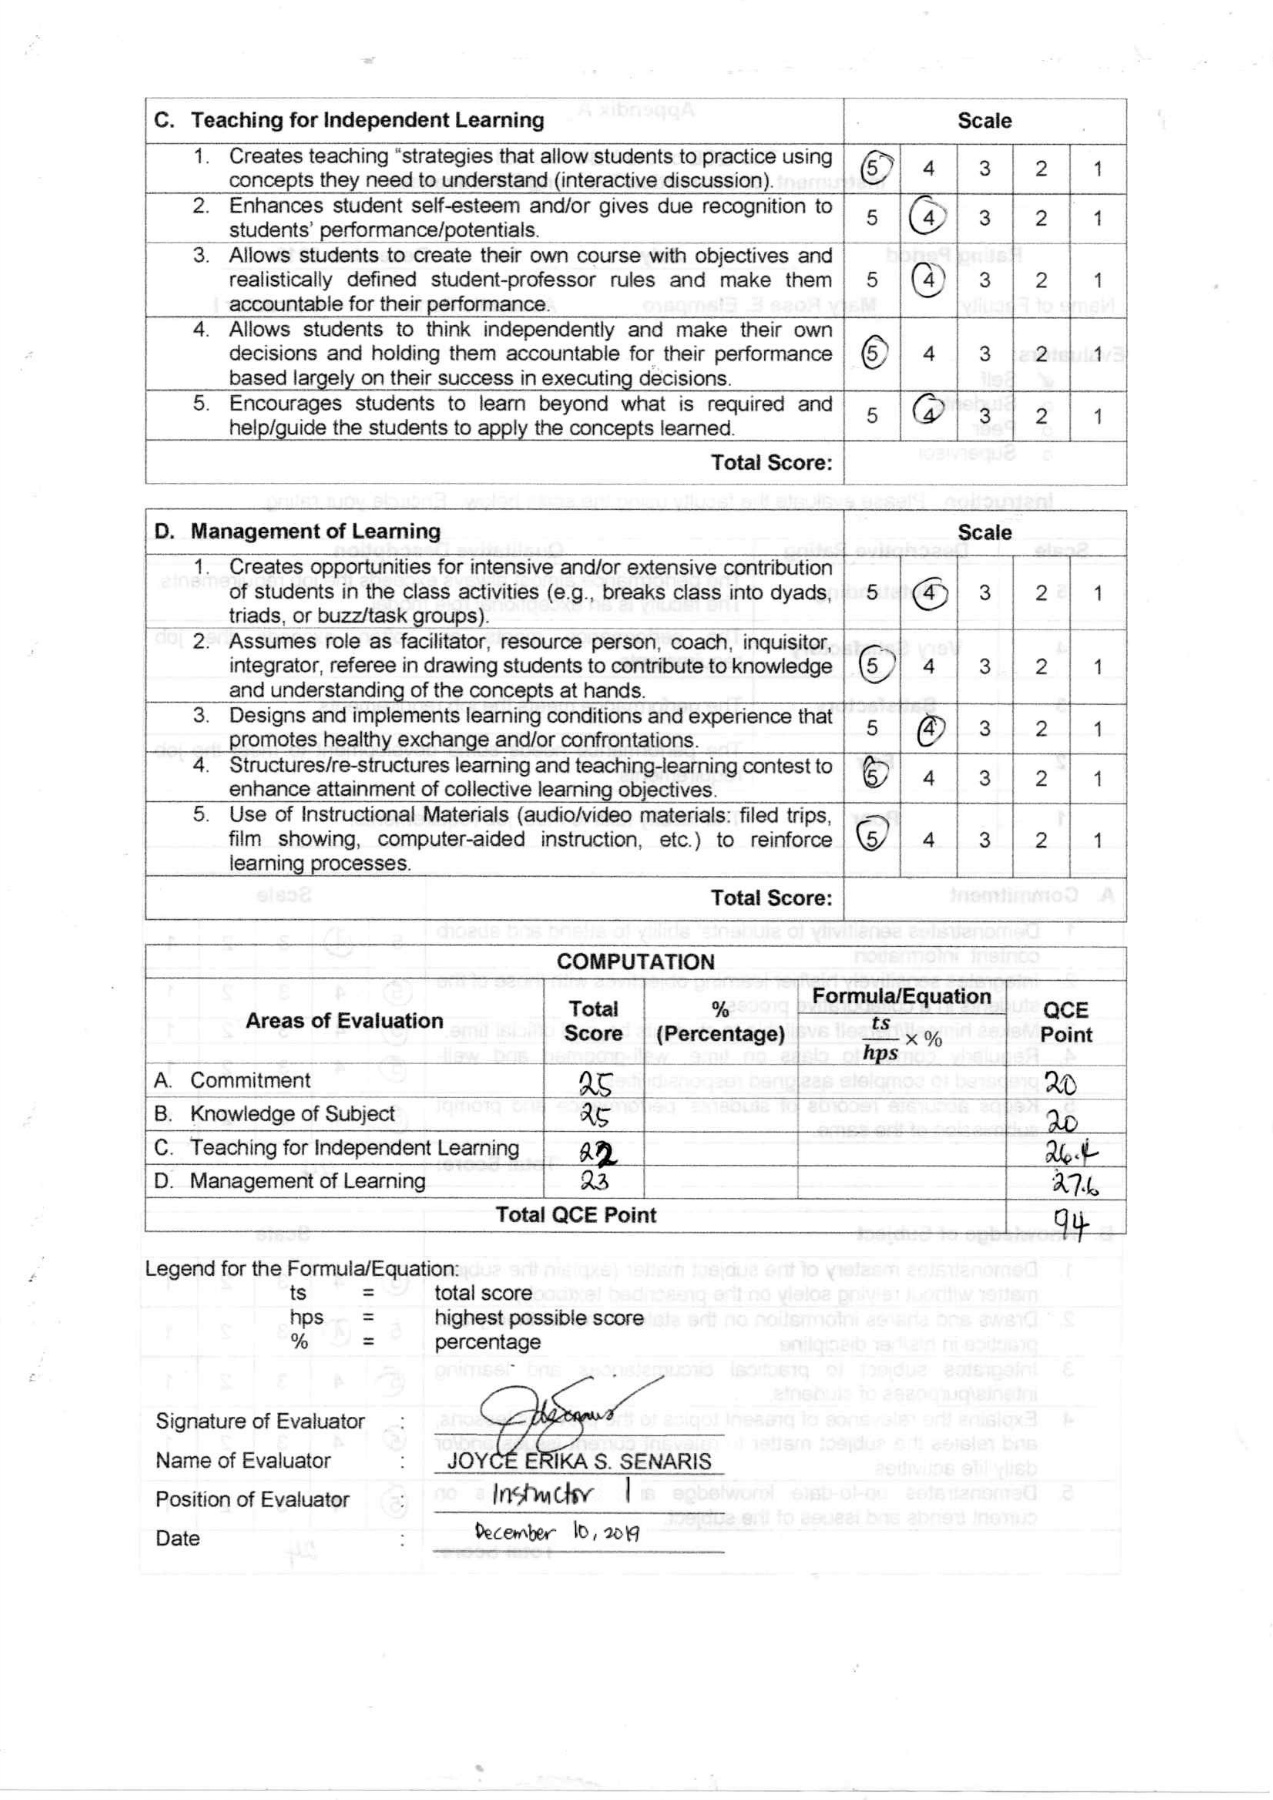 C. Teaching for Independent Learning Scale
1. Creates teaching "strategies that allow students to practice using 5 4 3 2 1
concepts they need to understand (interactive discussion).
2. Enhances student self-esteem and/or gives due recognition to 5 4 3 2 1
students' performance/potentials.
3. Allows students to create their own course with objectives and
realistically defined student-professor rules and make them 5 4 3 2 1
accountable for their performance.
4. Allows students to think independently and make their own
decisions and holding them accountable for their performance 5 4 3 2 1
based largely on their success in executing decisions.
5. Encourages students to learn beyond what is required and 5 4 3 2 1
help/guide the students to apply the concepts learned.
Total Score:
D. Management of Learning Scale
1. Creates opportunities for intensive and/or extensive contribution
of students in the class activities (e.g., breaks class into dyads, 5 4 3 2 1
triads, or buzz/task groups).
2. Assumes role as facilitator, resource person, coach, inquisitor,
integrator, referee in drawing students to contribute to knowledge 5 4 3 2 1
and understanding of the concepts at hands.
3. Designs and implements learning conditions and experience that 5 4 3 2 1
promotes healthy exchange and/or confrontations.
4. Structures/re-structures learning and teaching-learning contest to 5 4 3 2 1
enhance attainment of collective learning objectives.
5. Use of Instructional Materials (audio/video materials: filed trips,
film showing, computer-aided instruction, etc.) to reinforce 5 4 3 2 1
learning processes.
Total Score:
COMPUTATION
Areas of Evaluation Total Score % (Percentage) Formula/Equation ts/hps × % QCE Point
A. Commitment 25 20
B. Knowledge of Subject 25 20
C. Teaching for Independent Learning 22 26.4
D. Management of Learning 23 27.6
Total QCE Point 94
Legend for the Formula/Equation:
ts = total score
hps = highest possible score
% = percentage
Signature of Evaluator :
Name of Evaluator : JOYCE ERIKA S. SENARIS
Position of Evaluator : Instructor I
Date : December 10, 2019